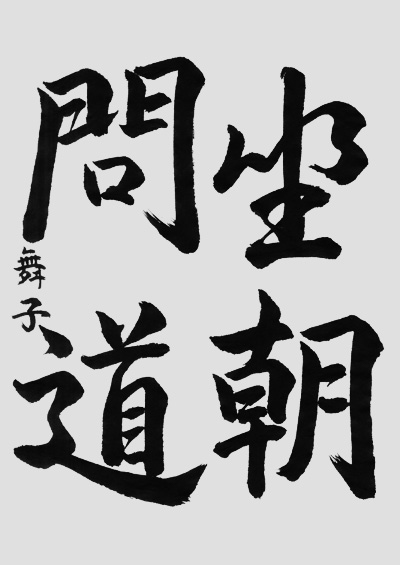 坐朝
問道
舞子